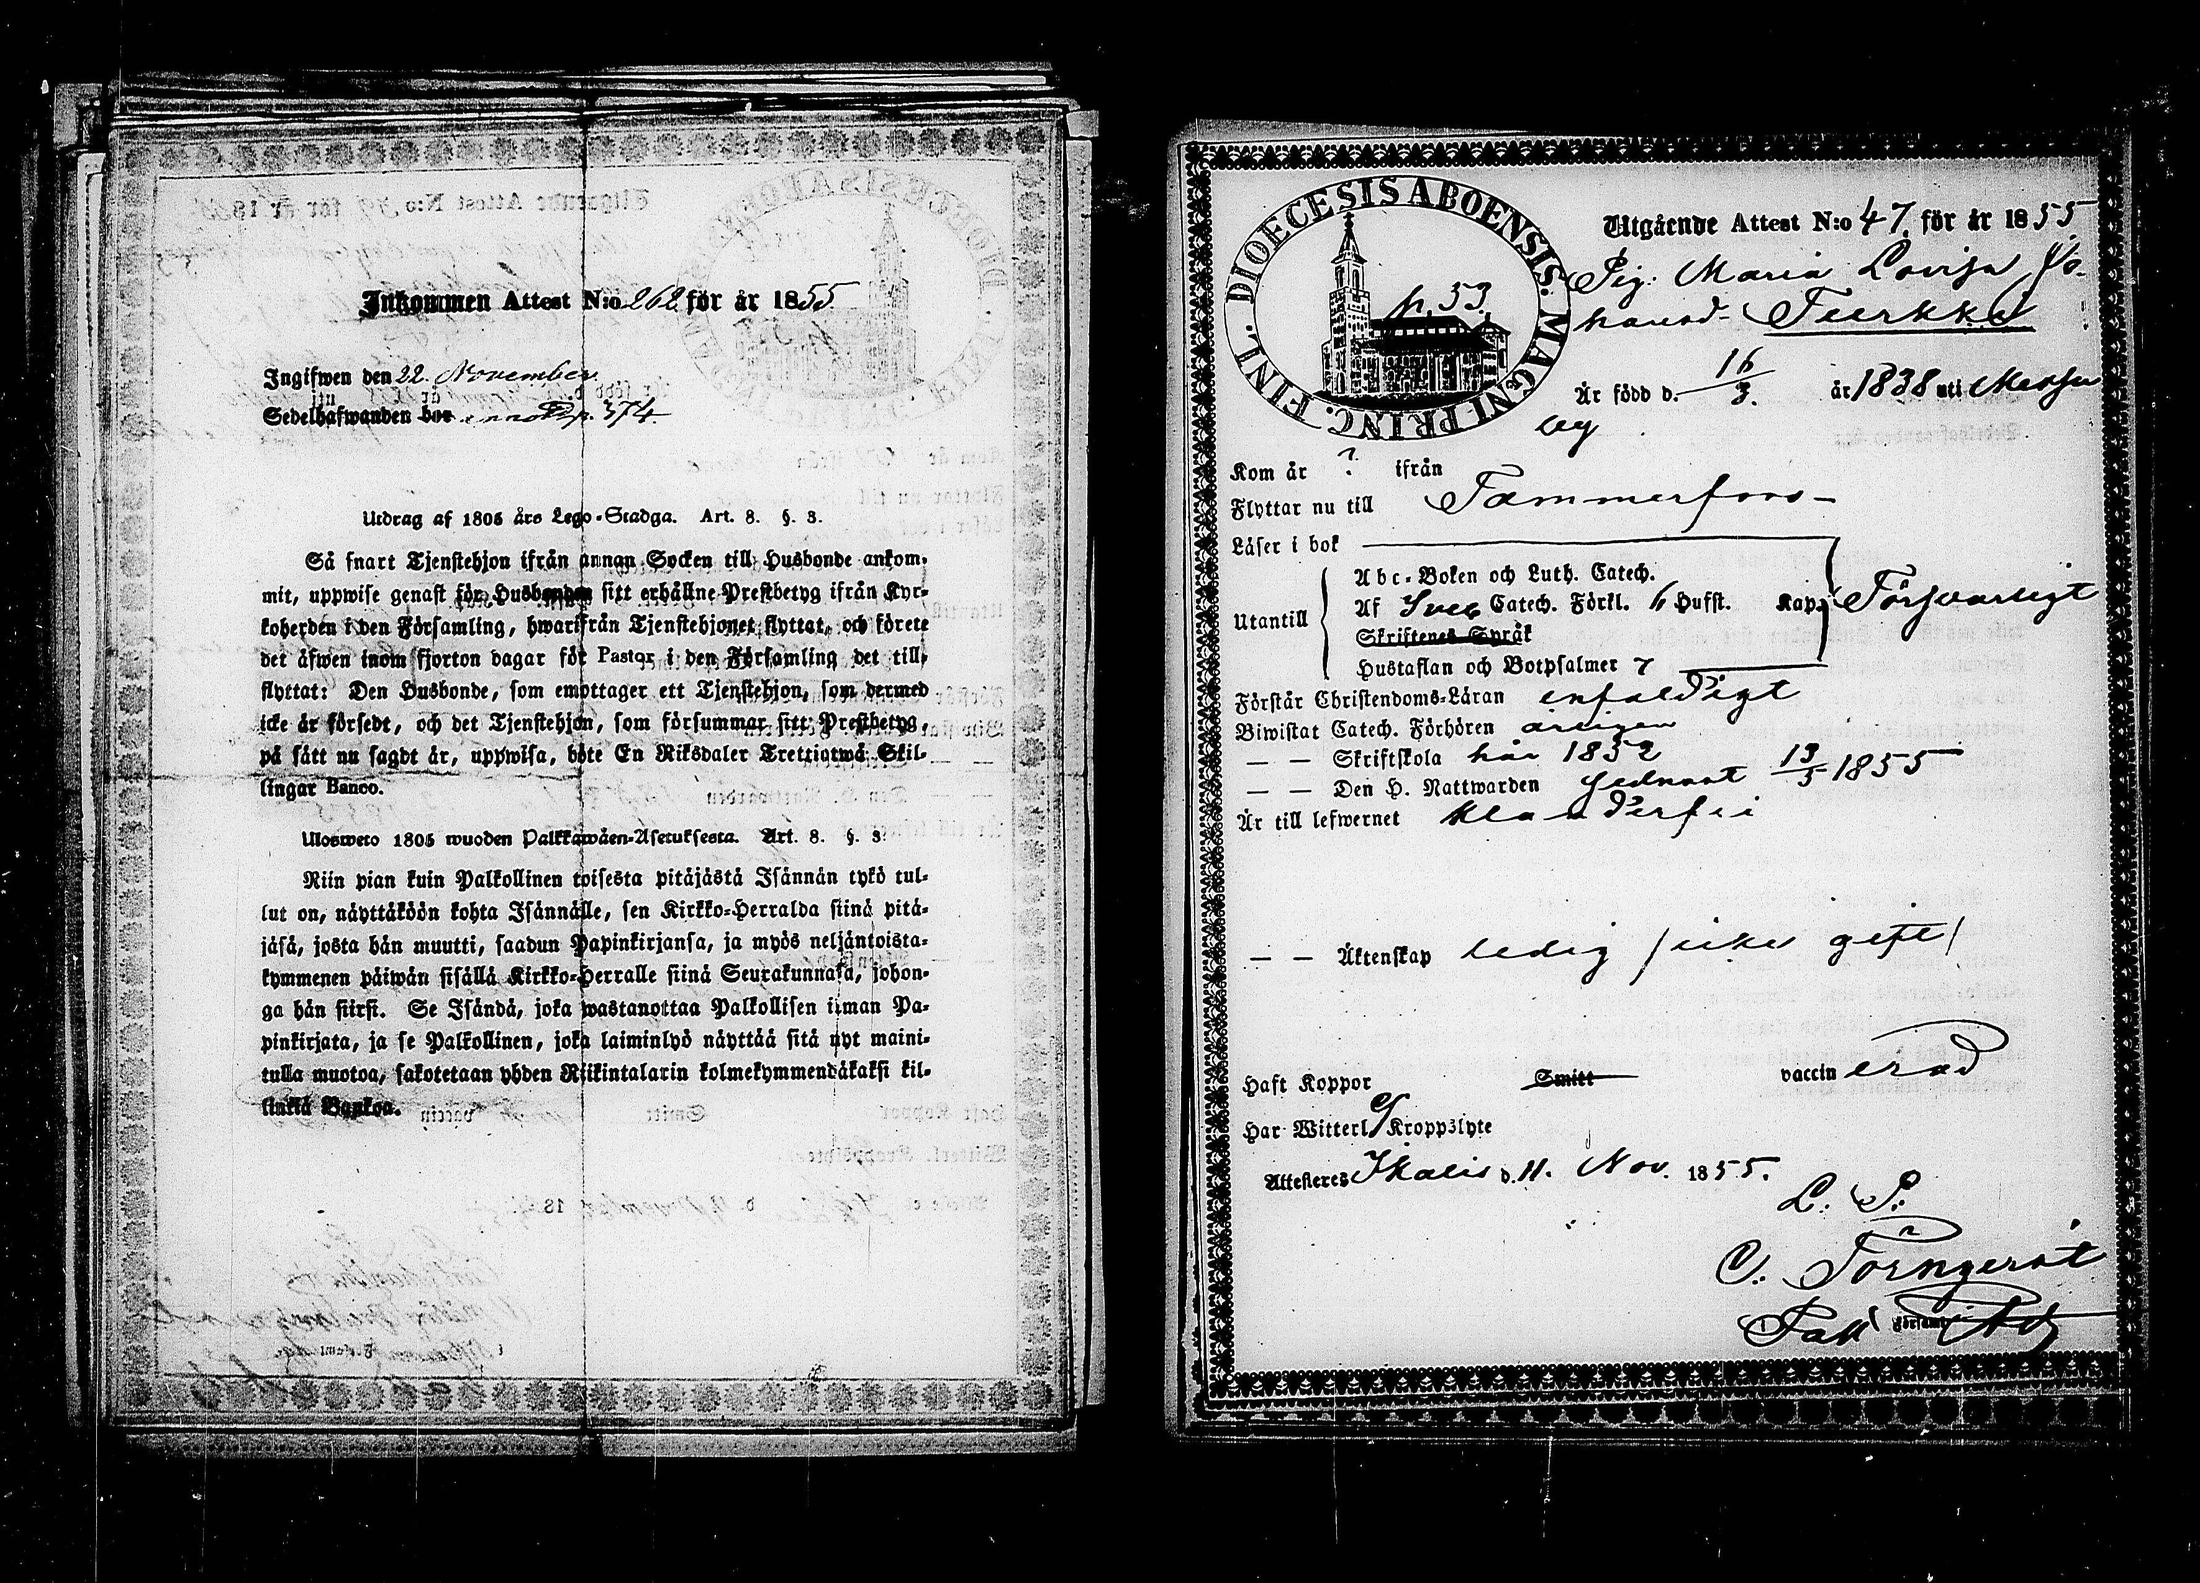 Inkommen Attest N:o 262 för år 1855
Ingifwen den 22. November
Sedelhafwanden bor p. 374.
Utdrag af 1805 års Lego-Stadga. Art. 8. §. 3.
Så snart Tjenstehjon ifrån annan Socken till Husbonde ankom-
mit, uppwise genast för Husbonden sitt erhållne Prestbetyg ifrån Kyr-
koherden i den Församling, hwarifrån Tjenstehjonet flyttat, och förete
det äfwen inom fjorton dagar för Pastor i den Församling det till-
flyttat: Den Husbonde, som emottager ett Tjenstehjon, som dermed
icke är försedt, och det Tjenstehjon, som försummar sitt Prestbetyg,
på sätt nu sagdt är, uppwisa, böte En Riksdaler Trettiotwå Skil-
lingar Banco.
Ulosweto 1805 wuoden Palkkawäen-Asetuksesta. Art. 8. §. 3.
Niin pian kuin Palkollinen toisesta pitäjästä Isännän tykö tul-
lut on, näyttäköön kohta Isännälle, sen Kirkko-Herralda siinä pitä-
jäsä, josta hän muutti, saadun Papinkirjansa, ja myös neljäntoista-
kymmenen päiwän sisällä Kirkko-Herralle siinä Seurakunnasa, johon-
ga hän siirsi. Se Isändä, joka wastanottaa Palkollisen ilman Pa-
pinkirjata, ja se Palkollinen, joka laiminlyö näyttää sitä nyt maini-
tulla muotoa, sakotetaan yhden Riikintalarin kolmekymmendäkaksi kil-
linkiä Bankoa.
DIOECESIS ABOENSIS. MAGNI PRINC. FINL.
p. 53
Utgående Attest N:o 47. för år 1855
Pig. Maria Lovisa Jo-
hansd. Tuerkki
Är född d. 16/3. år 1838 uti Mersu
by
Kom år ? ifrån
Flyttar nu till Tammerfors
Läser i bok
Utantill
Abc-Boken och Luth. Catech.
Af Sveb Catech. Förkl. 6 Hufst. Kap. Försvarligt
Skriftenes Språk
Hustaflan och Botpsalmer 7
Förstår Christendoms-Läran enfaldigt
Biwistat Catech. Förhören årligen
— — Skriftskola här 1852
— — Den H. Nattwarden sednast 13/5 1855
Är till lefwernet klanderfri
— — Äktenskap ledig /icke gift/
Haft Koppor Smitt vaccin erad
Har Witterl. Kroppslyte
Attesteras Ikalis d. 11. Nov. 1855.
L. S.
C. Törngerot
Församl.